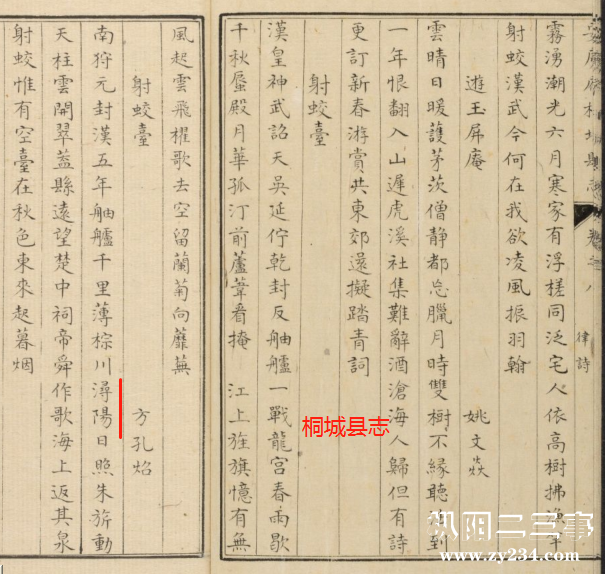 桐城縣志 卷之八 律詩
霧湧潮光六月寒家有浮槎同泛宅人依高樹拂竿
射蛟漢武今何在我欲凌風振羽翰
遊玉屏庵 姚文焱
雲晴日暖護茅茨僧靜都忘臘月時雙樹不緣聽到
一年恨翻入山遲虎溪社集難辭酒滄海人歸但有詩
更訂新春游賞共東郊還擬踏青詞
射蛟臺
漢皇神武詔天吳延佇乾封反舳艫一戰龍宮春雨歇
千秋蜃殿月華孤汀前蘆葦看掩 江上旌旗憶有無
風起雲飛櫂歌去空留蘭菊向蘼蕪
射蛟臺 方孔焰
南狩元封漢五年舳艫千里薄棕川潯陽日照朱旂動
天柱雲開翠葢縣遠望楚中祠帝舜作歌海上返其泉
射蛟惟有空臺在秋色東來起暮烟
桐城县志
枞阳二三事
www.zy234.com